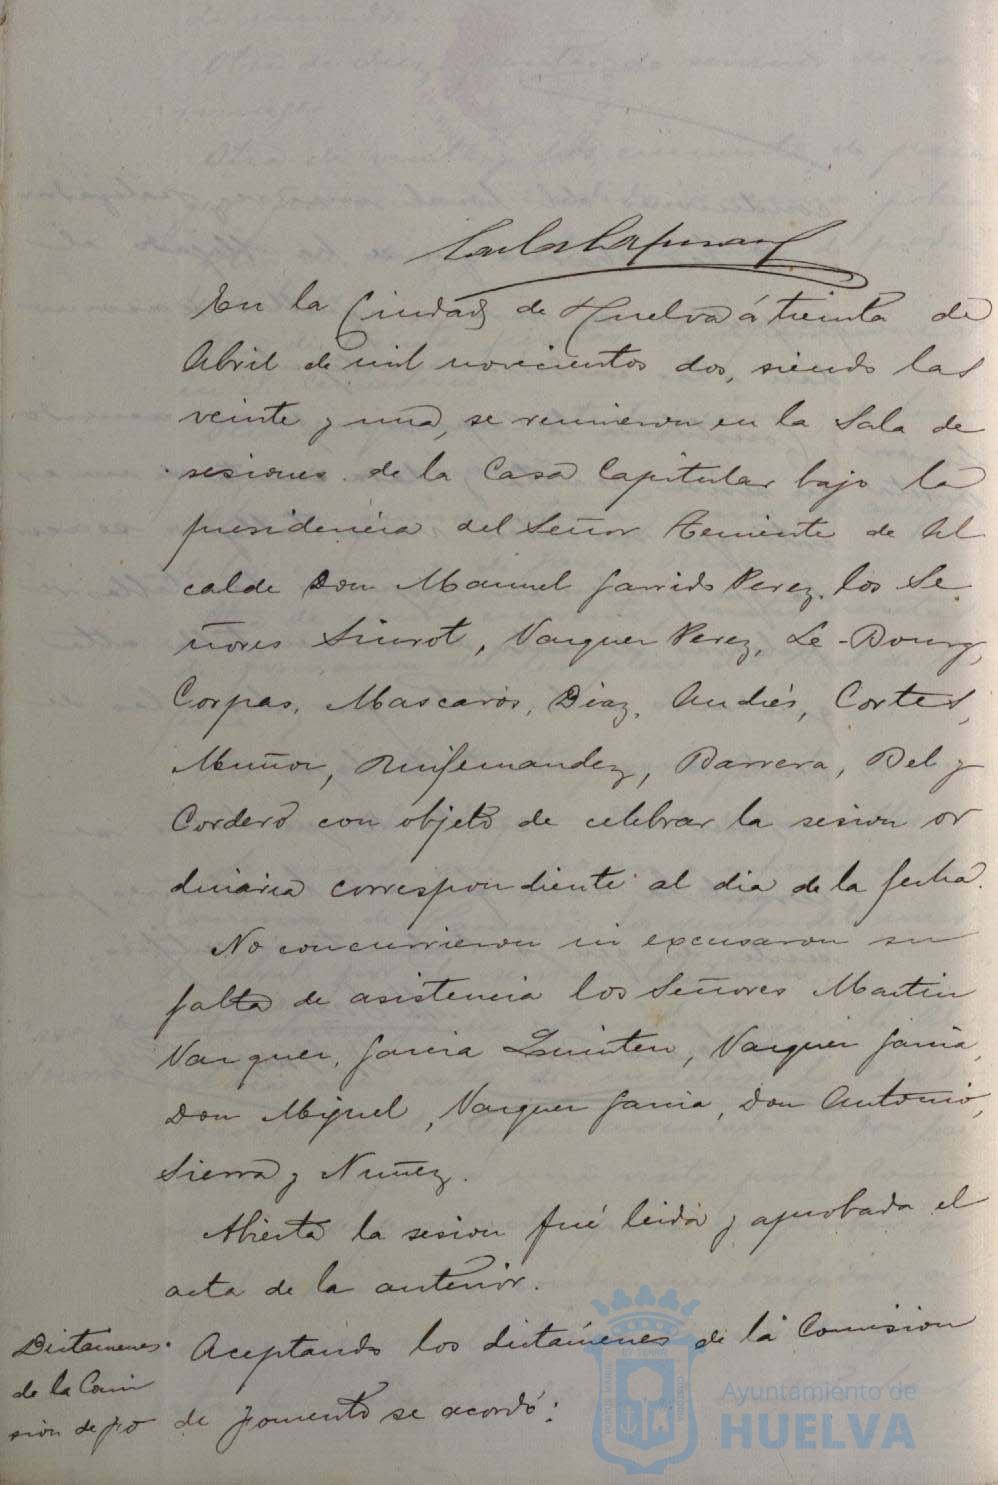 En la Ciudad de Huelva á treinta de
Abril de mil novecientos dos, siendo las
veinte y una, se reunieron en la Sala de
sesiones de la Casa Capitular bajo la
presidencia del Señor Teniente de Al
calde Don Manuel Garrido Perez, los Se
ñores Siurot, Vazquez Perez, Le-Bourg,
Corpas, Mascarós, Diaz, Andrés, Cortes,
Muñoz, Ruifernandez, Barrera, Bel y
Cordero con objeto de celebrar la sesion or
dinaria correspondiente al dia de la fecha.
No concurrieron ni excusaron su
falta de asistencia los Señores Martin
Vazquez, Garcia Quintero, Vazquez Garcia,
Don Miguel, Vazquez Garcia, Don Antonio,
Sierra y Nuñez.
Abierta la sesion fué leida y aprobada el
acta de la anterior.
Dictamenes
de la Comi
sion de fo
Aceptando los dictámenes de la Comision
de fomento se acordó:
Ayuntamiento de
HUELVA